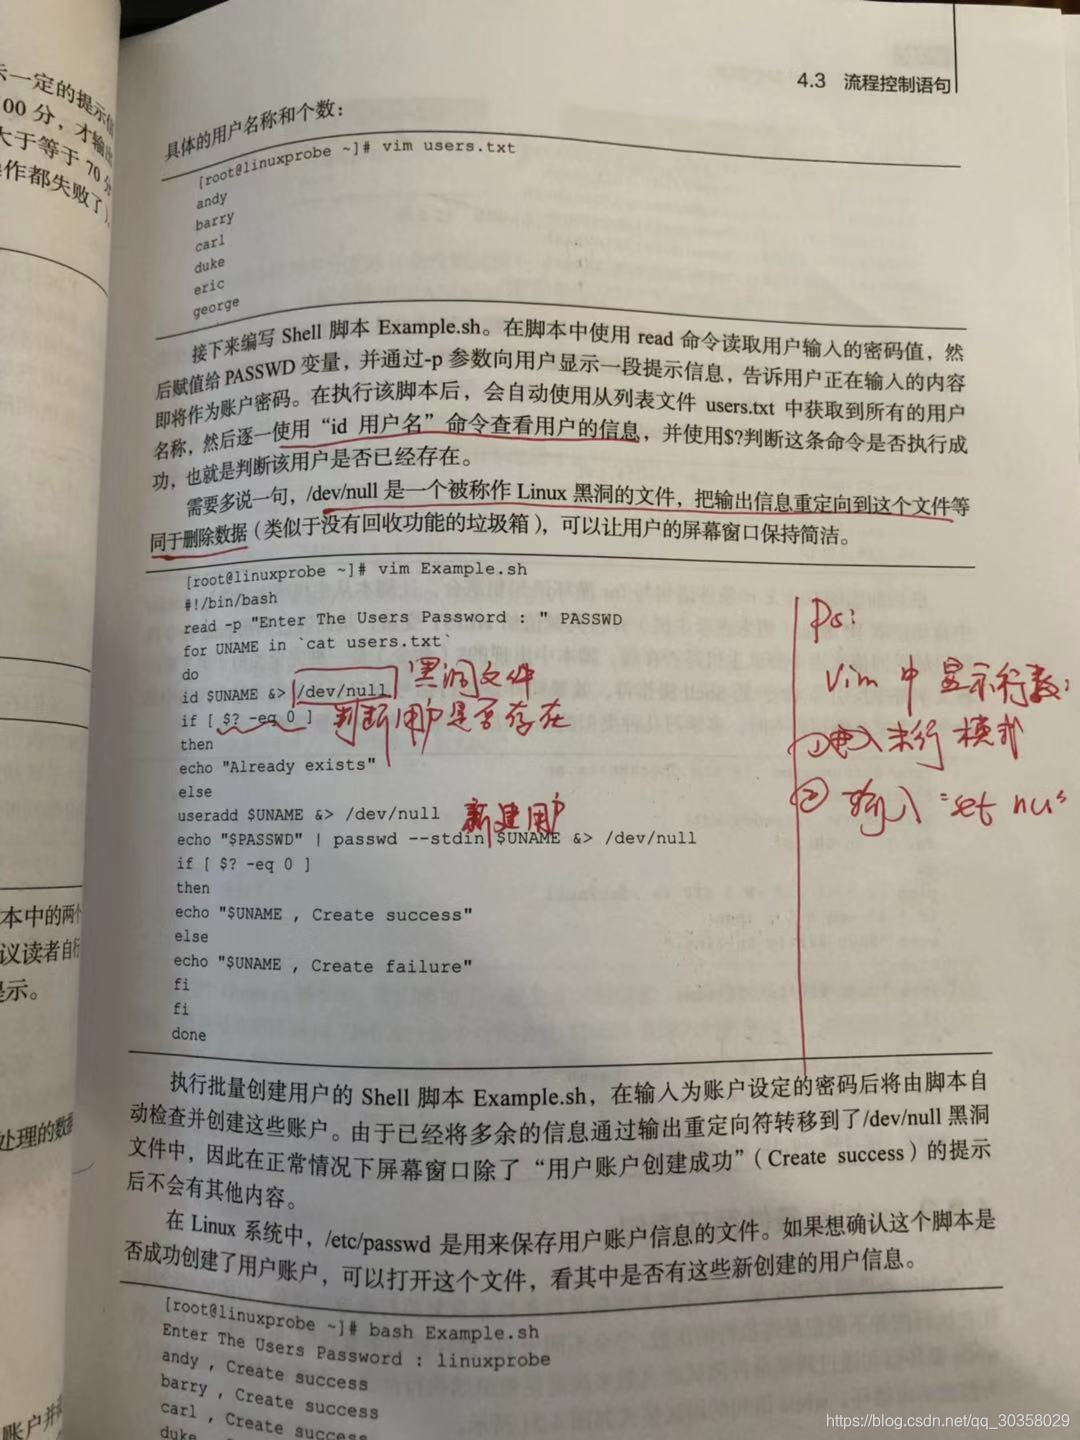 示一定的提示信
00 分，才输出
大于等于 70 分
操作都失败了)
本中的两个
议读者自行
提示。
处理的数据
账户并
4.3 流程控制语句
具体的用户名称和个数：
[root@linuxprobe ~]# vim users.txt
andy
barry
carl
duke
eric
george
接下来编写 Shell 脚本 Example.sh。在脚本中使用 read 命令读取用户输入的密码值，然
后赋值给 PASSWD 变量，并通过-p 参数向用户显示一段提示信息，告诉用户正在输入的内容
即将作为账户密码。在执行该脚本后，会自动使用从列表文件 users.txt 中获取到所有的用户
名称，然后逐一使用“id 用户名”命令查看用户的信息，并使用$?判断这条命令是否执行成
功，也就是判断该用户是否已经存在。
需要多说一句，/dev/null 是一个被称作 Linux 黑洞的文件，把输出信息重定向到这个文件等
同于删除数据（类似于没有回收功能的垃圾箱），可以让用户的屏幕窗口保持简洁。
[root@linuxprobe ~]# vim Example.sh
#!/bin/bash
read -p "Enter The Users Password : " PASSWD
for UNAME in `cat users.txt`
do
id $UNAME &> /dev/null 黑洞文件
if [ $? -eq 0 ] 判断用户是否存在
then
echo "Already exists"
else
useradd $UNAME &> /dev/null 新建用户
echo "$PASSWD" | passwd --stdin $UNAME &> /dev/null
if [ $? -eq 0 ]
then
echo "$UNAME , Create success"
else
echo "$UNAME , Create failure"
fi
fi
done
Ps:
Vim 中显示行数:
① 进入末行模式
② 输入 "set nu"
执行批量创建用户的 Shell 脚本 Example.sh，在输入为账户设定的密码后将由脚本自
动检查并创建这些账户。由于已经将多余的信息通过输出重定向符转移到了/dev/null 黑洞
文件中，因此在正常情况下屏幕窗口除了“用户账户创建成功”（Create success）的提示
后不会有其他内容。
在 Linux 系统中，/etc/passwd 是用来保存用户账户信息的文件。如果想确认这个脚本是
否成功创建了用户账户，可以打开这个文件，看其中是否有这些新创建的用户信息。
[root@linuxprobe ~]# bash Example.sh
Enter The Users Password : linuxprobe
andy , Create success
barry , Create success
carl , Create success
duke
https://blog.csdn.net/qq_30358029